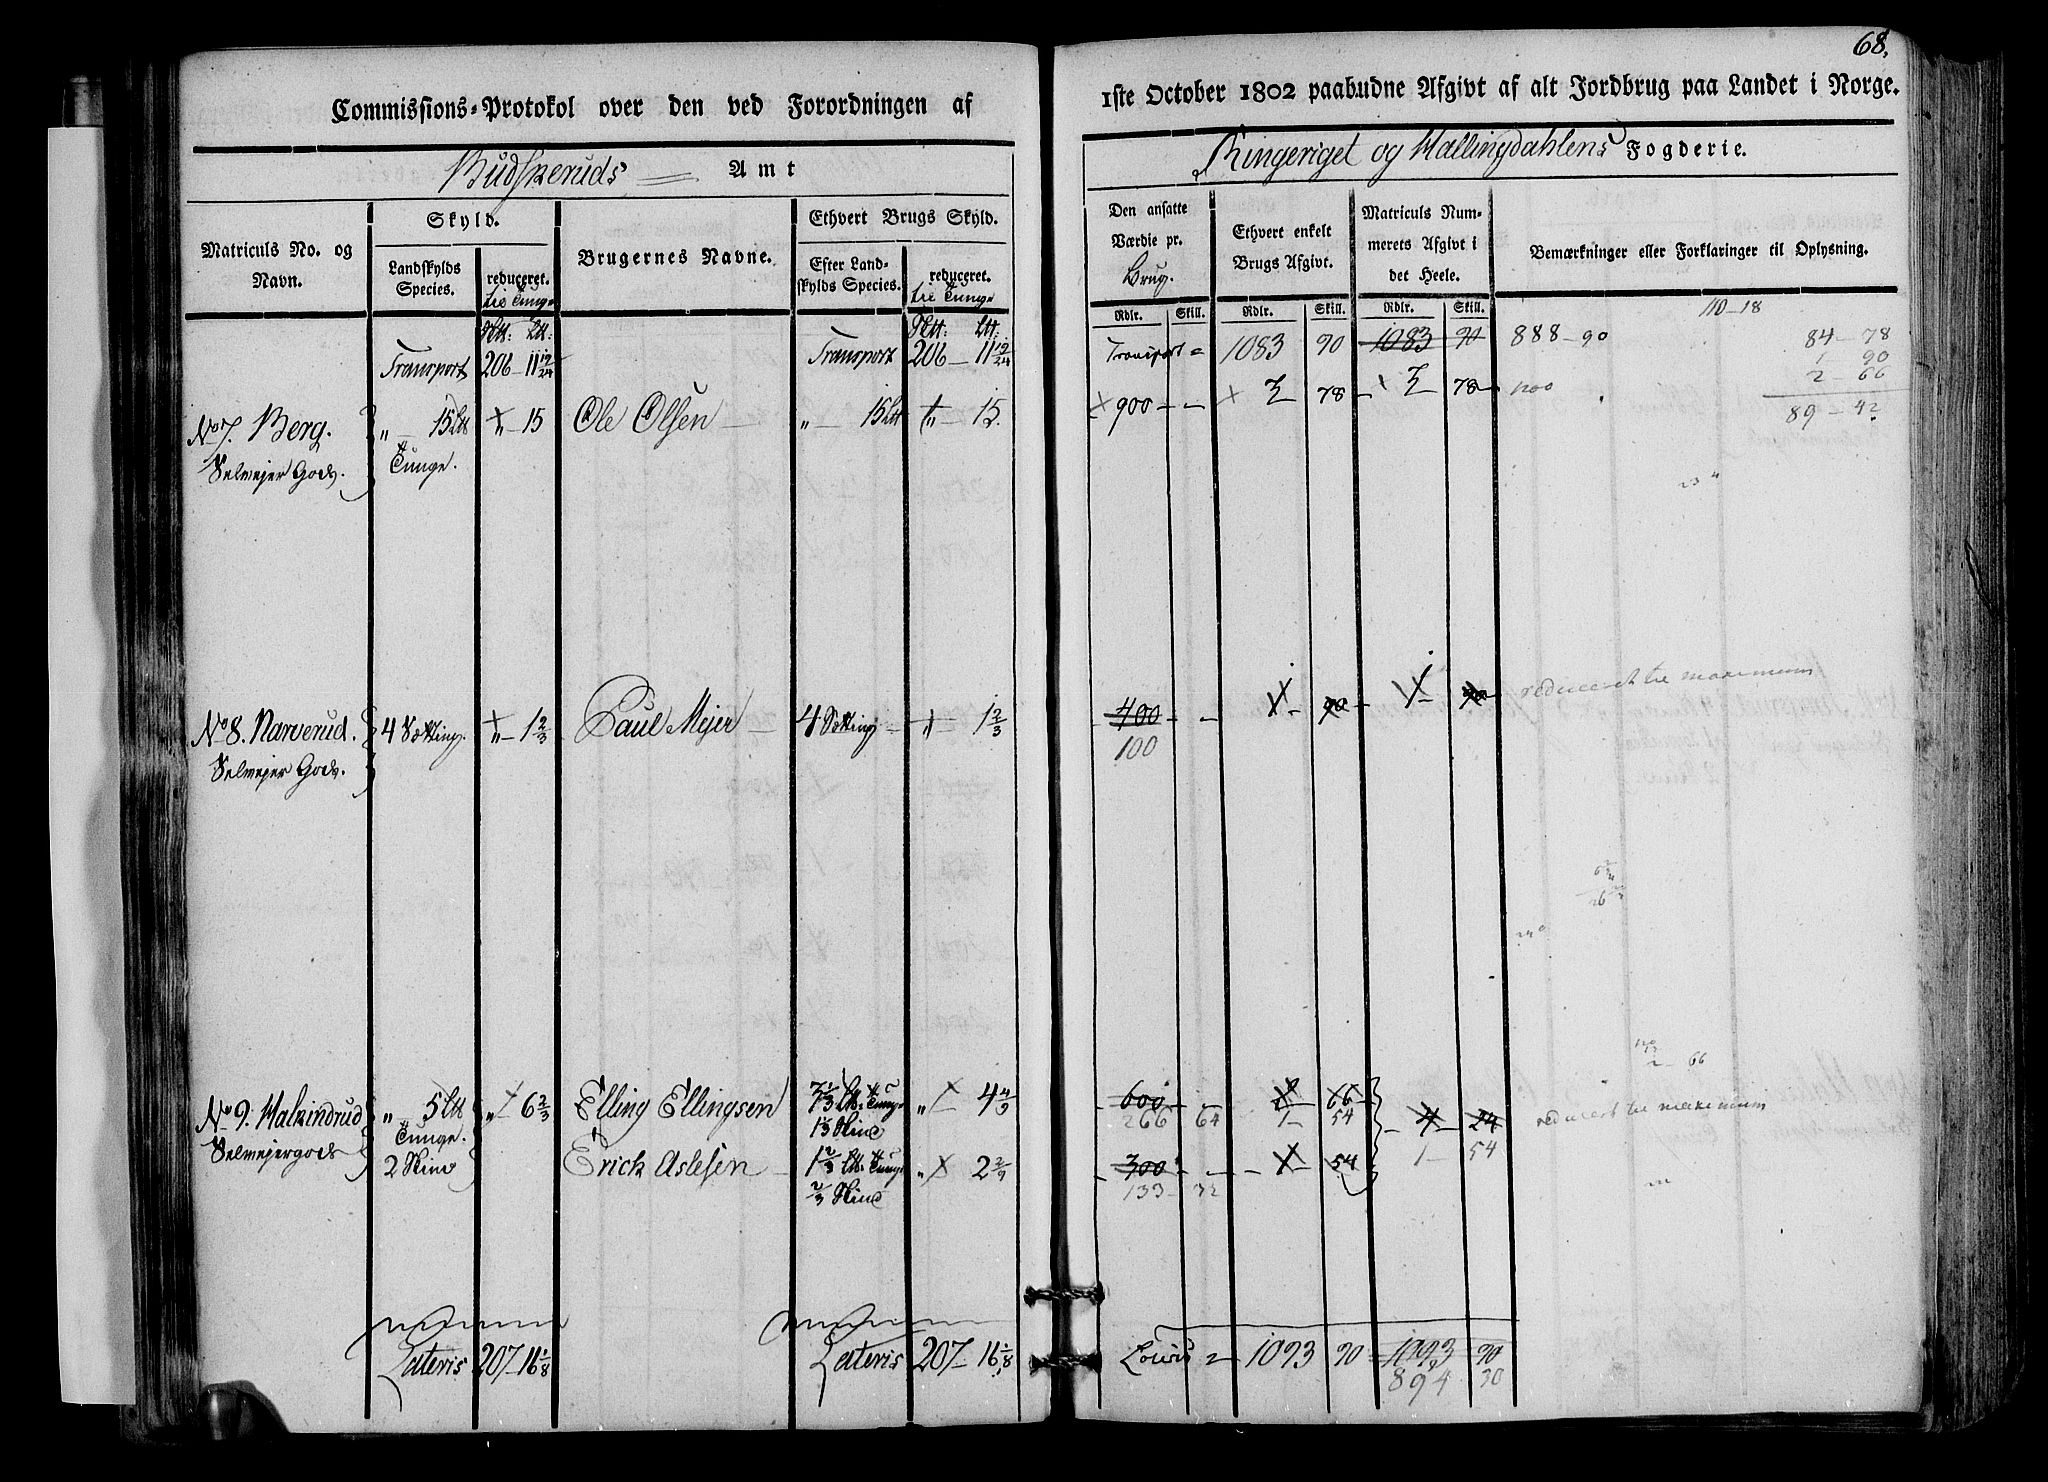 68.
Commissions-Protokol over den ved Forordningen af
1ste October 1802 paabudne Afgivt af alt Jordbrug paa Landet i Norge.
Budskeruds Amt
Ringeriget og Hallingdahlens Fogderie.
Matriculs No. og Navn.
Skyld.
Landskylds Species.
reduceret.
til Tunge
Brugernes Navne.
Ethvert Brugs Skyld.
Efter Landskylds Species.
reduceret.
til Tunge
Den ansatte Værdie pr. Brug.
Rdlr. Skill.
Ethvert enkelt Brugs Afgivt.
Rdlr. Skill.
Matriculs Nummerets Afgivt i det Heele.
Rdlr. Skill.
Bemærkninger eller Forklaringer til Oplysning.
Transport 206 - 11 19/24 Transport 206 - 11 19/24 Transport = 1083 90 1083 90 888 - 90
110 - 18
84 - 78
1 90
2 - 66
89 - 42
No 7. Berg. „ - 15 Ltt „ - 15 Ole Olsen „ - 15 Ltt „ - 15. 900 - - 78 78
Selmejer Gods. Tunge.
No 8. Narverud. 4 Setting. „ - 1 2/3 Paul Mejer 4 Setting „ - 1 2/3 400 - - 1 - 90 1 - 90 reduceret til maximum
Selmejer Gods. 100
No 9. Halkindrud „ 5 Ltt „ - 6 2/3 Elling Ellingsen 7 1/3 Ltt Tunge „ - 4 4/9 600 - - 2 - 66 4 - 24 reducert til maximum
Selmejergods Tunge. 1 1/3 Skind 266 64 1 - 54 1 - 54
2 Skind Erick Aslesen 1 2/3 Ltt Tunge „ 2 2/9 300 - - 1 - 54
2/3 Skind 133 - 32
2 - 66
Lateris 207 - 16 1/8 Lateris 207 - 16 1/8 1093 90 1093 90
894 30